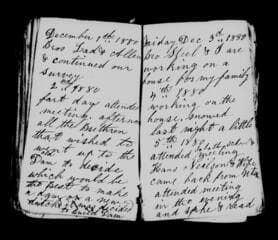 December 1st 1880
Bro Lad & Allen
& continued our
survey
2nd 1880
fast day attended
meeting. afternoon
all the Brethren
that wished to
went up to the
Dam to decide
which would be
the best to make
a new
decided
Dam
Friday Dec 3rd 1880
Bro Steel & I are
working on a
house for my family
4th 1880
working on the
house, snowed
last night a little
5th 1880
attended meeting
Hans & wife
came back from
attended meeting
in the evening
and spoke & read